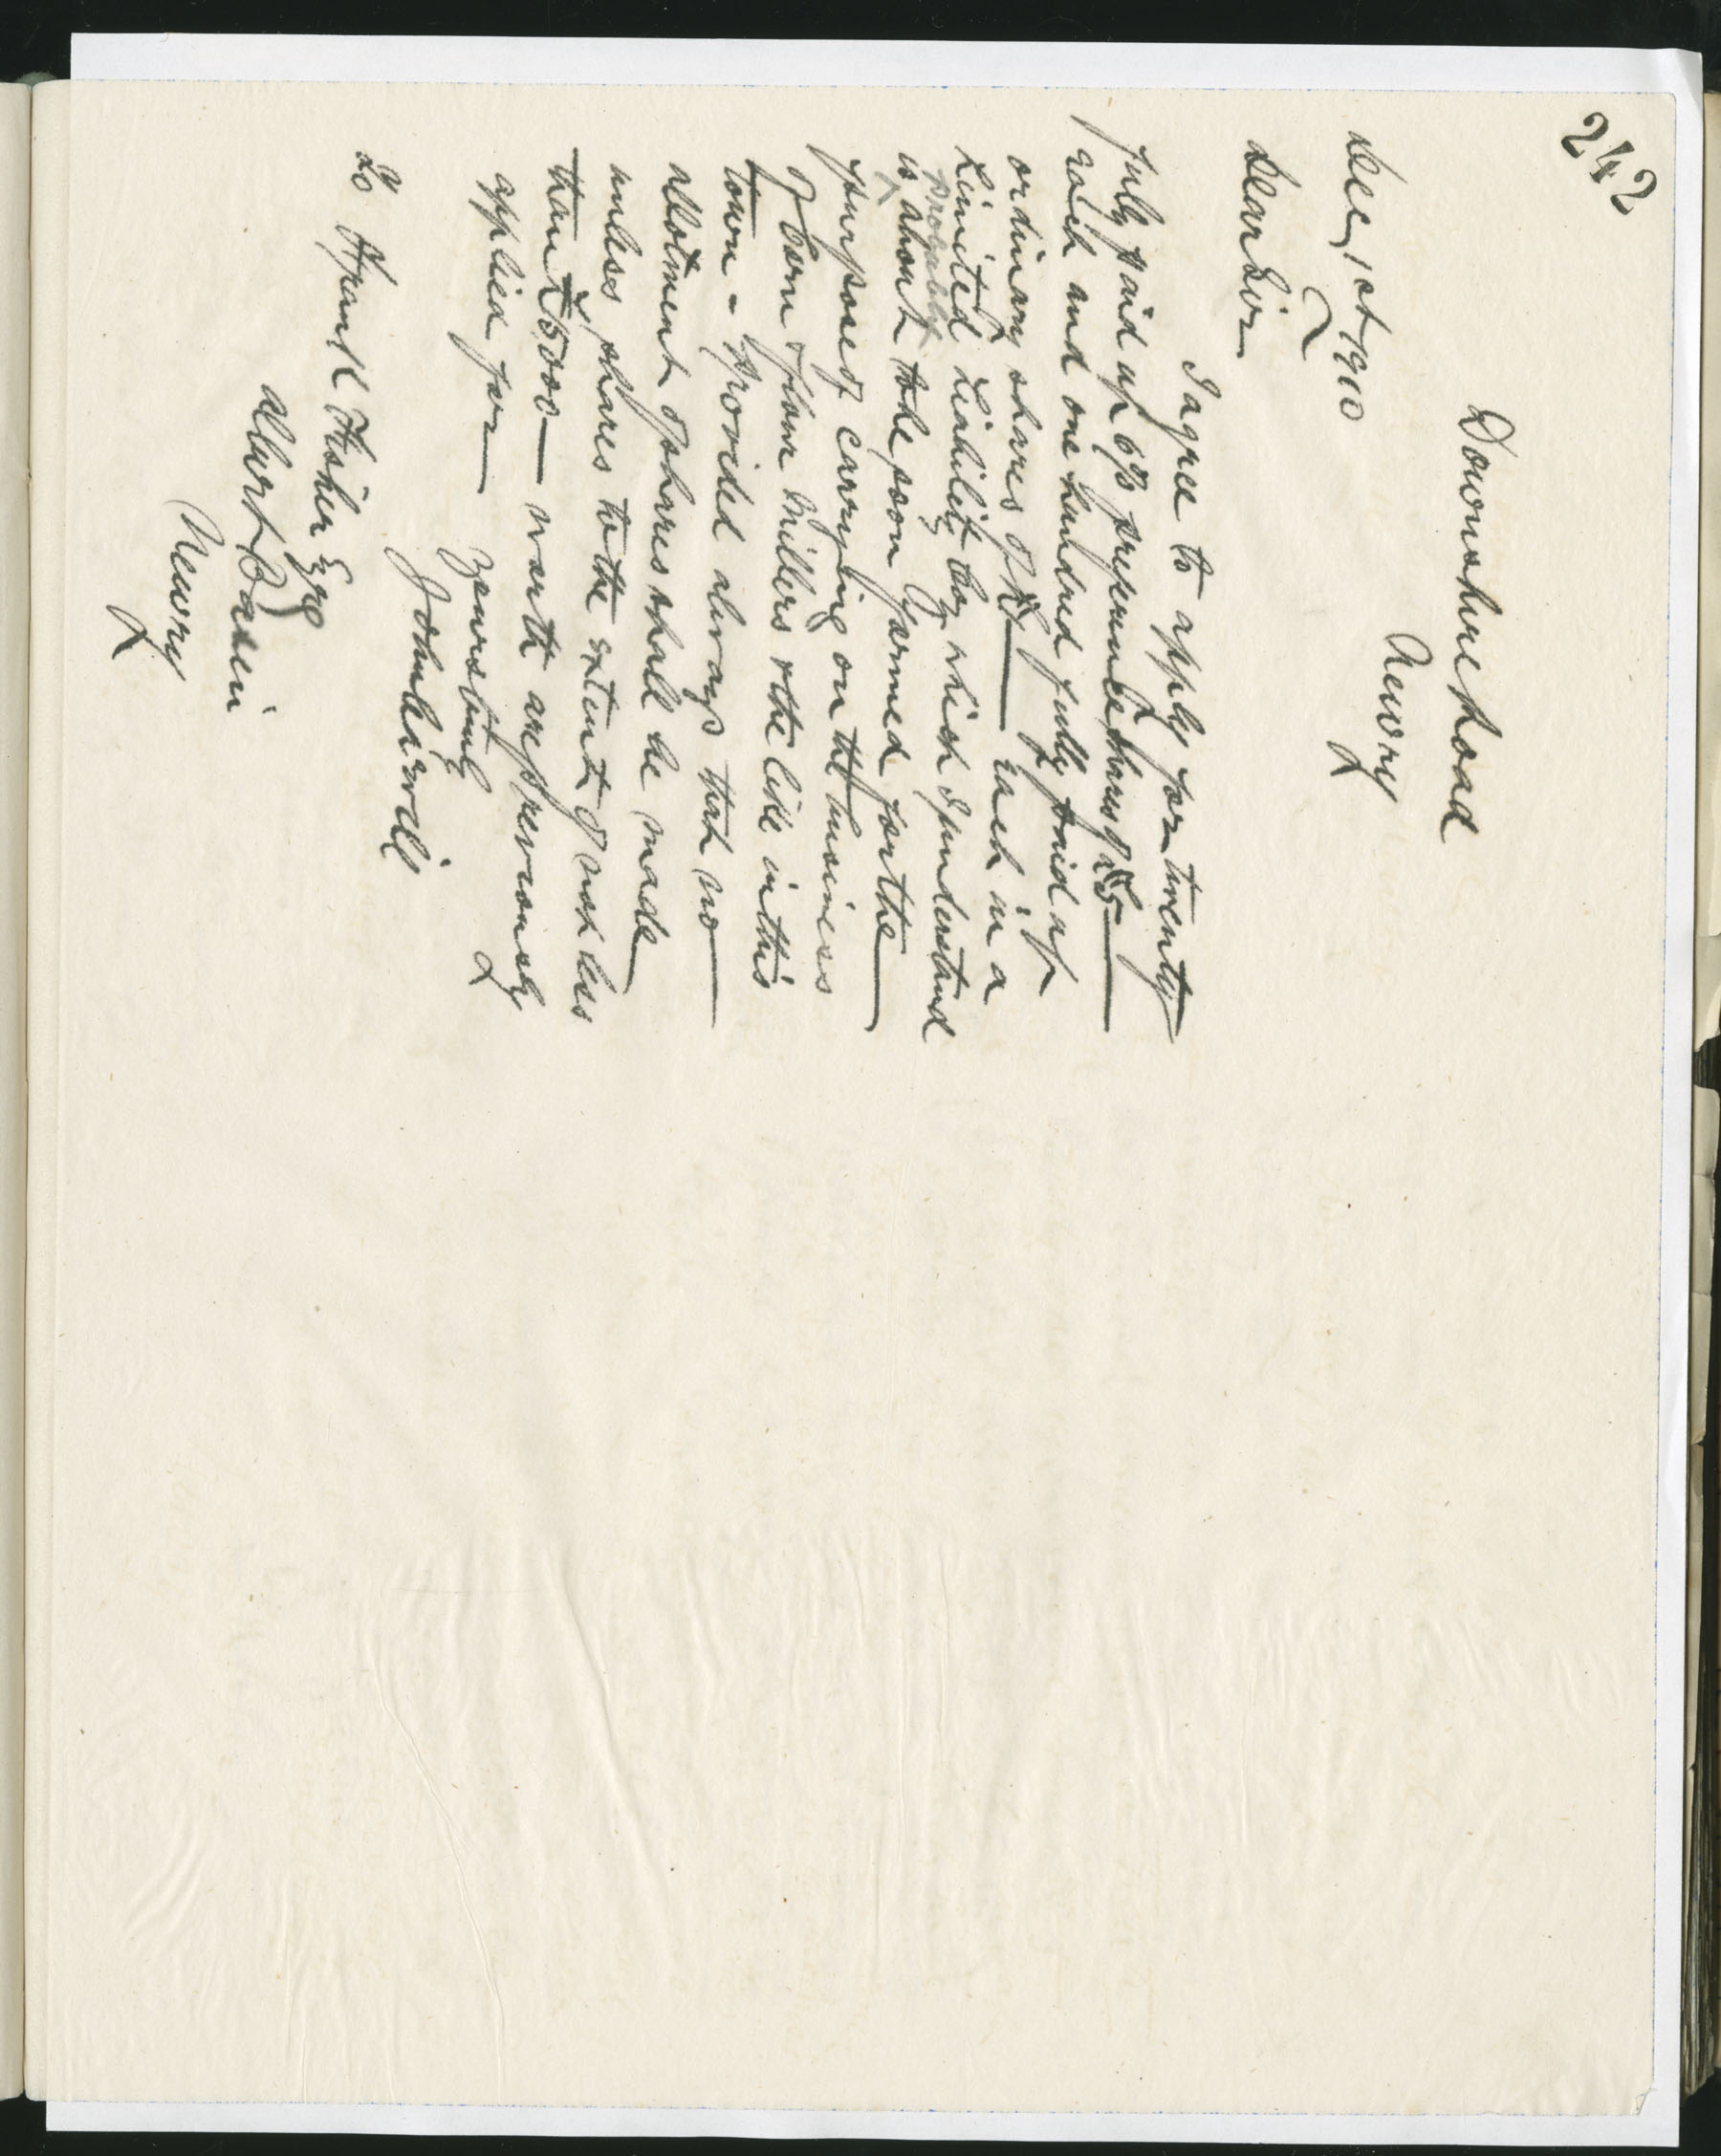 242
Downshire Road
Newry
Dec 1st 1910
Dear Sir
I agree to apply for twenty
fully paid up 6% preference shares of £5
each and one hundred fully paid up
ordinary shares of £1 each in a
Limited Liability Coy which I understand
probably
is about to be soon formed for the
purpose of carrying on the business
of Corn & flour Millers & the like in this
town - Provided always that no
allotment of shares shall be made
unless shares to the extent of not less
than £5000 worth are previously
applied for
Yours truly
John
To Frank Fisher Esqre
Albert Basin
Newry